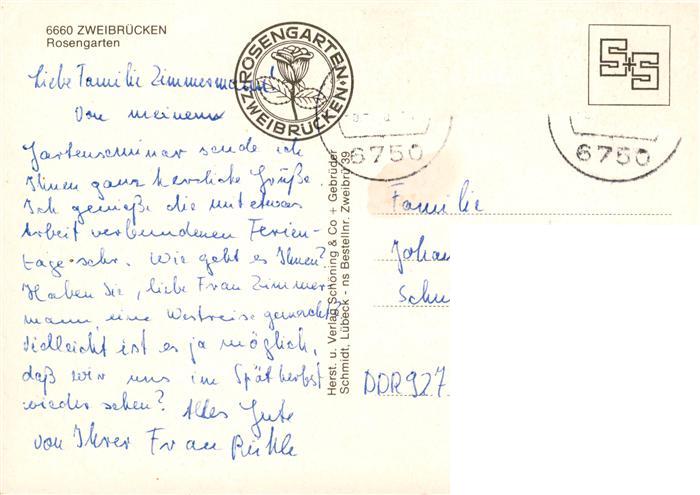 6660 ZWEIBRÜCKEN
Rosengarten
ROSENGARTEN
ZWEIBRÜCKEN
S+S
Liebe Familie Zimmermann!
Von meinem
Gartenseminar sende ich
Ihnen ganz herzliche Grüße.
Ich genieße die mit etwas
Arbeit verbundenen Ferien-
tage sehr. Wie geht es Ihnen?
Haben Sie, liebe Frau Zimmer-
mann, eine Westreise gemacht?
Vielleicht ist es ja möglich,
daß wir uns im Spätherbst
wieder sehen? Alles Gute
von Ihrer Frau
Herst. u. Verlag Schöning & Co + Gebrüder
Schmidt, Lübeck - ns Bestellnr. Zweibrü 39
6750
6750
Familie
Johan
Schu
DDR 927